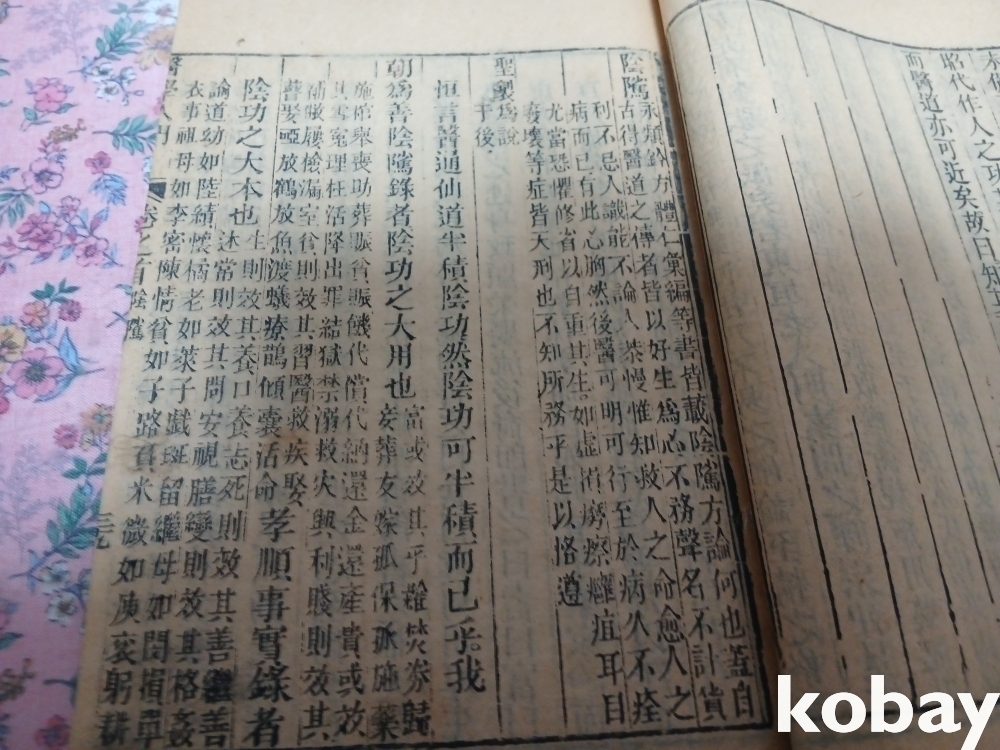 宋代
昭代作人之功
而醫道亦可近矣故曰
陰騭
永類鈐方體仁彙編等書皆載陰騭方論何也蓋自
古得醫道之傳者皆以好生爲心不務聲名不計貨
利不忌人識能不論人恭慢惟知救人之命愈人之
病而已有此心胸然後醫可明可行至於病久不痊
尤當恐懼修省以自重其生如虛
瘵癰疽耳目
等症皆天刑也不知所務乎是以恪遵
聖製爲說
于後
恒言醫通仙道半積陰功然陰功可半積而已乎我
朝爲善陰騭錄者陰功之大用也
富或效其
焚券歸
妾葬友嫁孤保孤施藥
施棺舉喪助葬賑貧賑饑代償代納還金還產貴或效
其雪冤理枉活降出罪結獄禁溺救火興利賤則效其
貧則效其習醫救疾娶
瞽娶啞放鶴放魚渡蟻療鵲傾囊活命
孝順事實錄者
陰功之大本也
生則效其養口養志死則效其善繼善
述常則效其問安視膳變則效其格姦
論道幼如陸績懷橘老如萊子戲斑留繼母如閔損單
衣事祖母如李密陳情貧如子路負米微如
袞躬耕
醫學入門
卷之首
陰騭
三
kobay